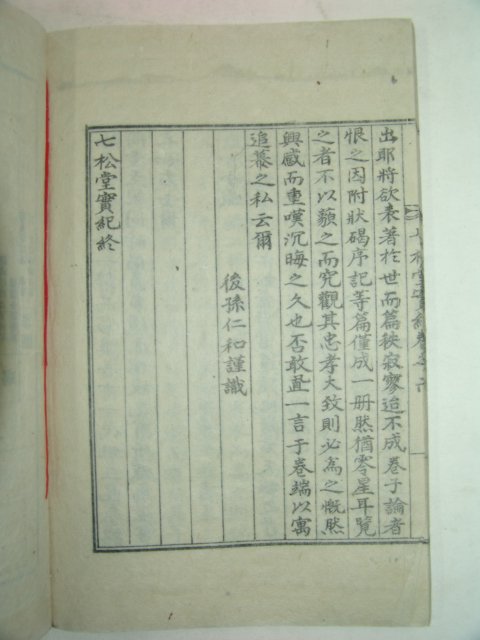 出耶將欲表著於世而篇秩寂寥迨不成卷子論者
恨之因附狀碣序記等篇僅成一册然猶零星耳覽
之者不以藐之而究觀其忠孝大致則必爲之慨然
興感而重嘆沉晦之久也否敢置一言于卷端以寓
追慕之私云爾
後孫仁和謹識
七松堂實紀終